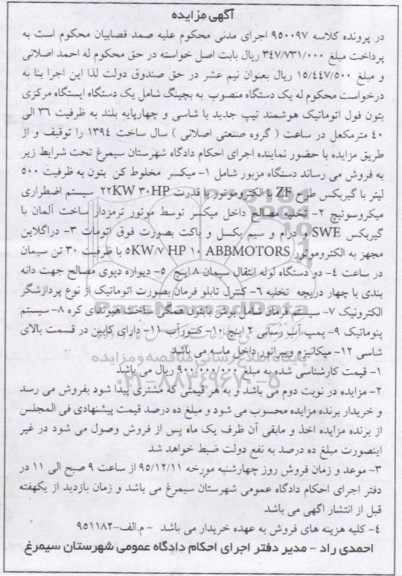 آگهی مزایده
در پرونده کلاسه ۹۵۰۰۹۷ اجرای مدنی محکوم علیه صمد قصابیان محکوم است به
پرداخت مبلغ ۳۴۷/۷۳۱/۰۰۰ ریال بابت اصل خواسته در حق محکوم له احمد اصلانی
و مبلغ ۱۵/۴۴۷/۵۰۰ ریال بعنوان نیم عشر در حق صندوق دولت لذا این اجرا بنا به
درخواست محکوم له یک دستگاه منصوب به بچینگ شامل یک دستگاه ایستگاه مرکزی
بتون فول اتوماتیک هوشمند تیپ جدید با شاسی و چهارپایه بلند به ظرفیت ۳۶ الی
۴۰ مترمکعل در ساعت ( گروه صنعتی اصلانی ) سال ساخت ۱۳۹۴ را توقیف و از
طریق مزایده با حضور نماینده اجرای احکام دادگاه شهرستان سیمرغ تحت شرایط زیر
به فروش می رساند دستگاه مزبور شامل ۱- میکسر مخلوط کن بتون به ظرفیت ۵۰۰
لیتر با گیربکس طرح ZF با الکتروموتور با قدرت ۲۲KW ۳۰HP سیستم اضطراری
میکروسوئیچ ۲- تخلیه مصالح داخل میکسر توسط موتور ترمزدار ساخت آلمان با
گیربکس SWE با درم و سیم بکسل و پاکت بصورت فوق اتومات ۳- دراگلاین
مجهز به الکتروموتور ۵KW۸ HP ۱۰ ABBMOTORS با ظرفیت ۳۰ تن سیمان
در ساعت ۴- دو دستگاه لوله انتقال سیمان ۸اینچ ۵- دیواره دپوی مصالح جهت دانه
بندی با چهار دریچه تخلیه ۶- کنترل تابلو فرمان بصورت اتوماتیک از نوع پردازشگر
الکترونیک ۷- سیستم فرمان شامل توزین باتون همگی ساخت هیوندای کره ۸- سیستم
پنوماتیک ۹- پمپ آب رسانی ۲ اینچ ۱۰- کنتور آب ۱۱- دارای کابین در قسمت بالای
شاسی ۱۲- میکانیزم ویبراتور داخل ماسه می باشد
۱- قیمت کارشناسی شده به مبلغ ۹۰۰/۰۰۰/۰۰۰ ریال می باشد
۲- مزایده در نوبت دوم می باشد و به هر قیمتی که مشتری پیدا شود بفروش می رسد
و خریدار برنده مزایده محسوب می شود و مبلغ ده درصد قیمت پیشنهادی فی المجلس
از برنده مزایده اخذ و مابقی آن ظرف یک ماه پس از فروش وصول می شود در غیر
اینصورت مبلغ ده درصد به نفع دولت ضبط خواهد شد
۳- موعد و زمان فروش روز چهارشنبه مورخه ۹۵/۱۲/۱۱ از ساعت ۹ صبح الی ۱۱ در
دفتر اجرای احکام دادگاه عمومی شهرستان سیمرغ می باشد و زمان بازدید از یکهفته
قبل از انتشار آگهی می باشد
۴- کلیه هزینه های فروش به عهده خریدار می باشد - م.الف-۹۵۱۱۸۲
احمدی راد - مدیر دفتر اجرای احکام دادگاه عمومی شهرستان سیمرغ
ParsNamadData
۰۲۱-۸۸۳۴۹۶۷۰-۵